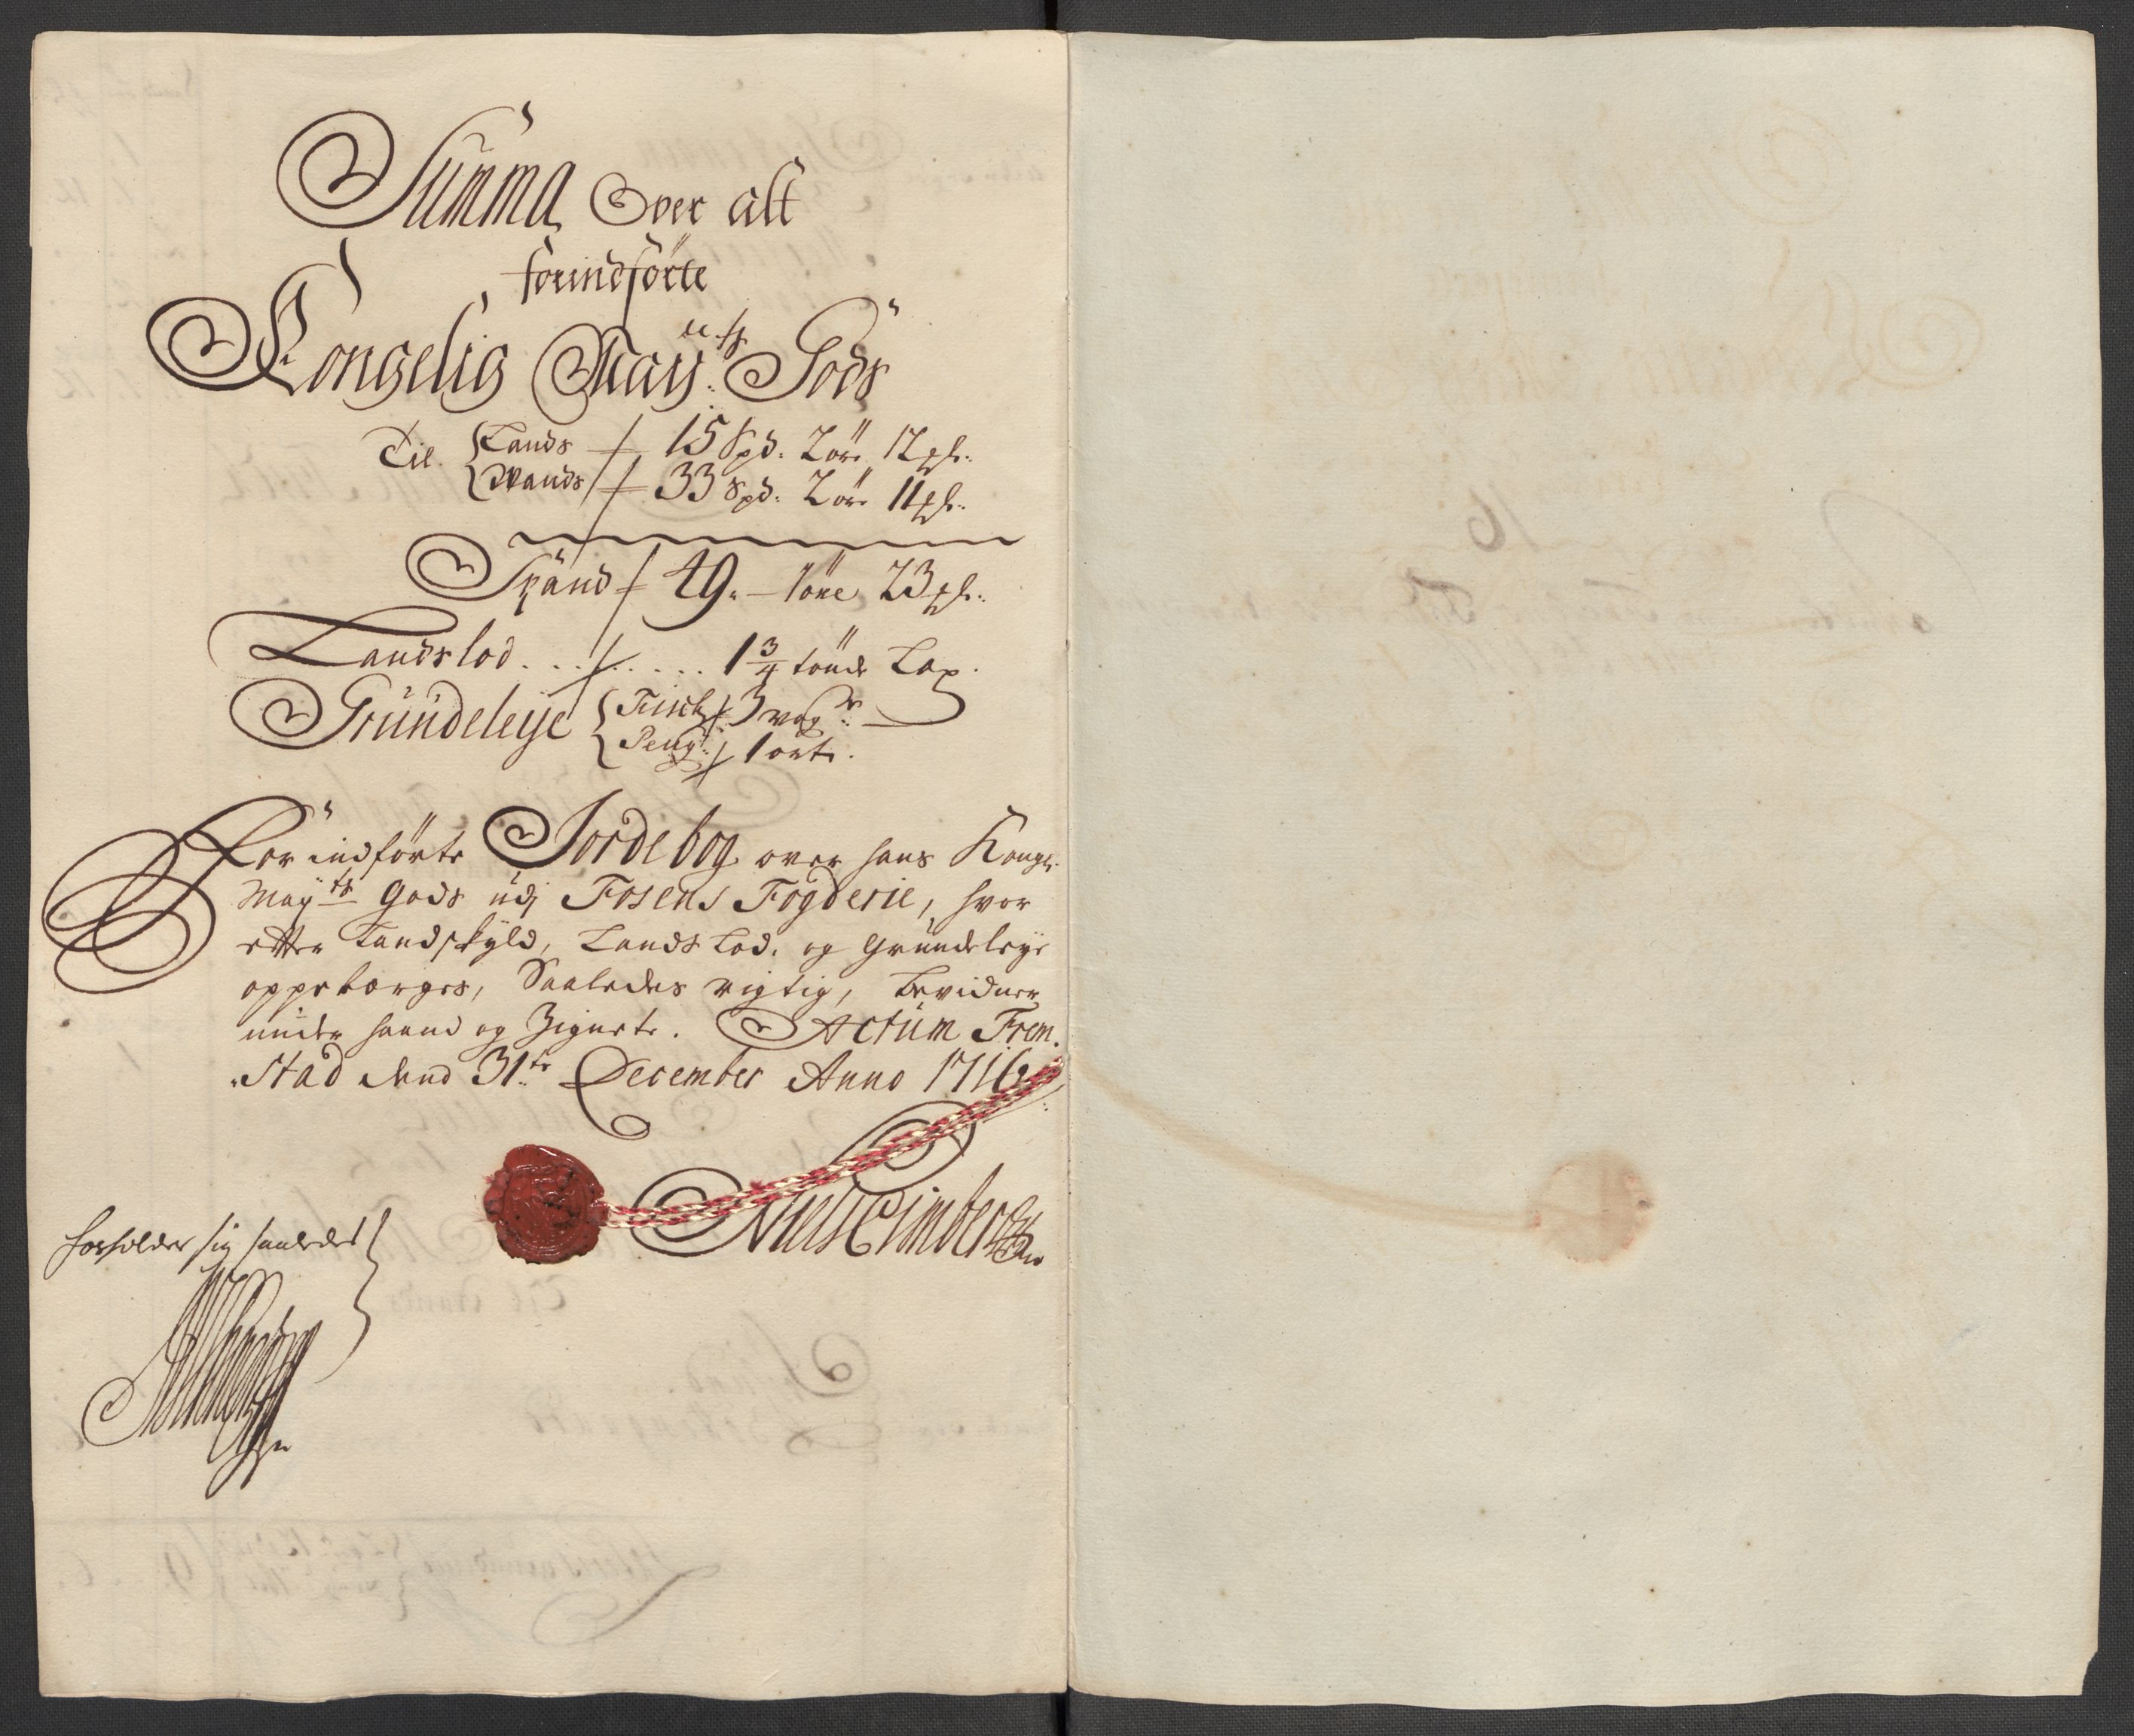 Summa Over alt
forindförte
Kongelig May:tts Gods
Til. Lands 15 Spd. 2 öre 12 sl.
Wands 33 Spd. 2 öre 11 sl.
Spänd 49. - 1 öre 23 sl.
Landslod . . . . . . . 1 3/4 tönde Lax.
Gründeleije Fisch 3 wog:r
Peng: 1 ort.
Forindförte Jordebog over hans Kongl.
May:ts Gods udj Fosens Fogderie, hvor
effter Landskyld, Lands Lod. og Gründeleye
oppebærges, Saaledes rigtig, Bevidner
under haand og Zignete. Actüm Frem-
stad dend 31.te December Anno 1716
Niels Cimber
forholder sig saaledes